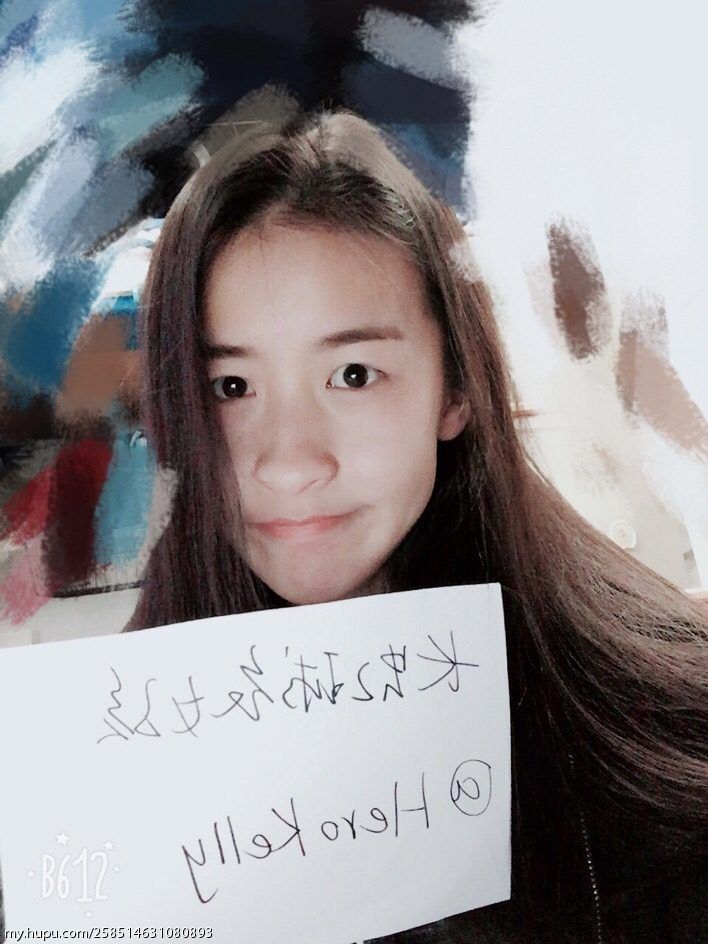 长 球 女孩
@Hero Kelly
B612
my.hupu.com/258514631080893